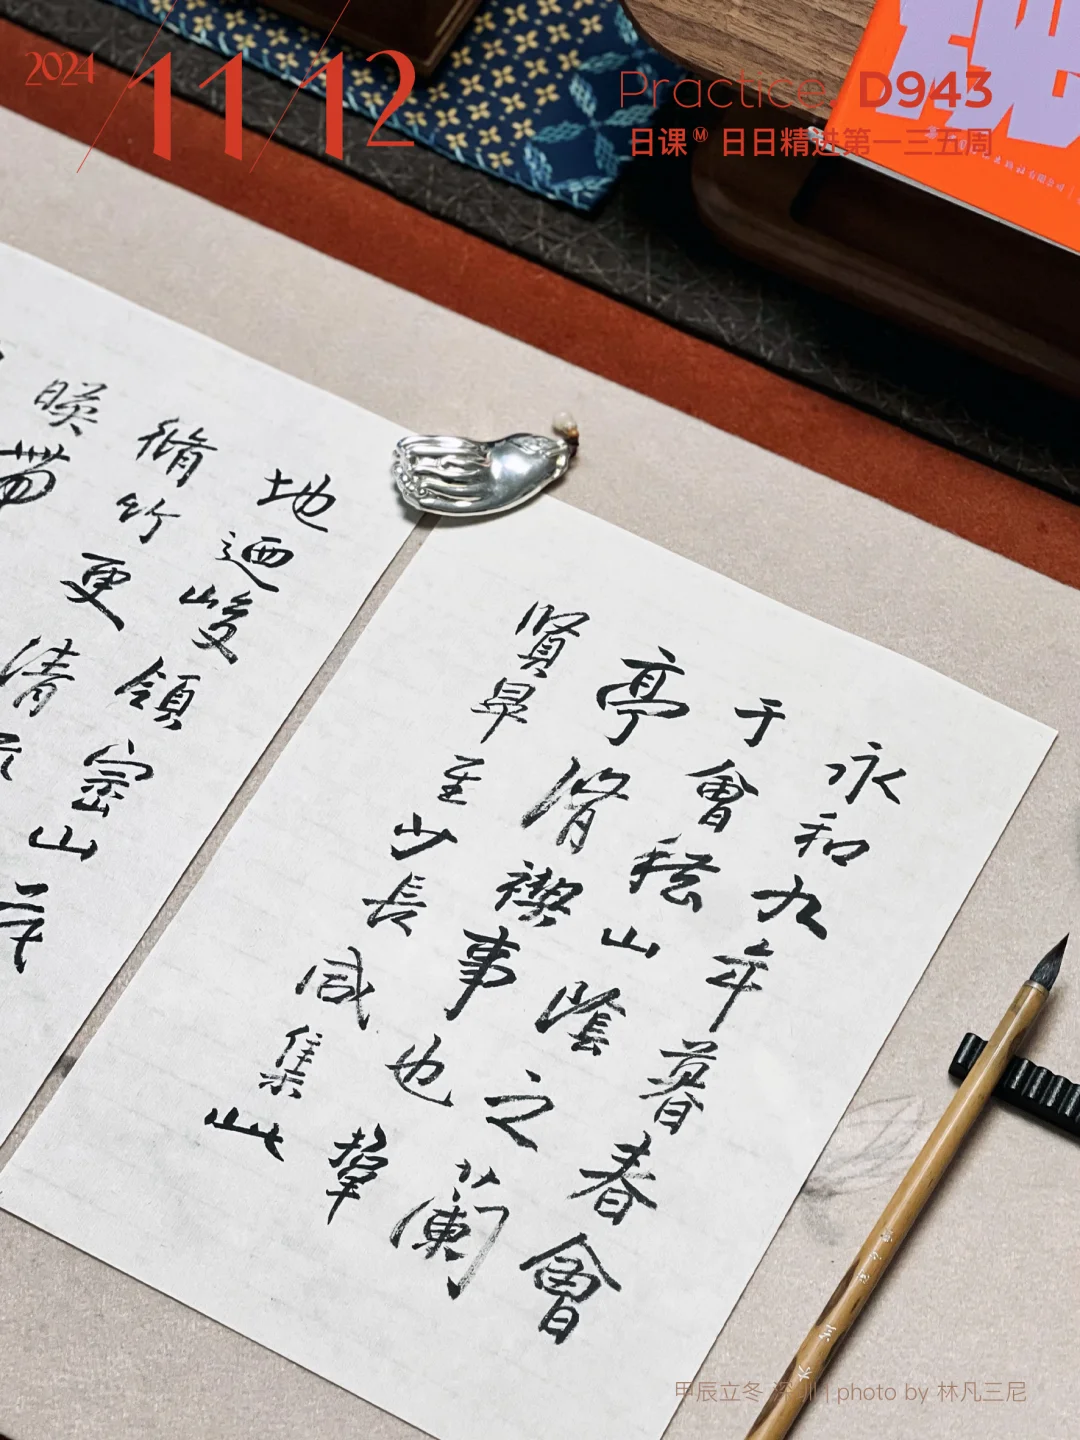 2024 11/12
Practice. D943
日课Ⓜ 日日精进第一三五周
永和九年暮春會
于會稽山陰之蘭
亭脩禊事也羣
賢畢至少長咸集此
地迺峻領崈山茂
脩竹更清
暎帶
甲辰立冬 深圳 | photo by 林凡三尼